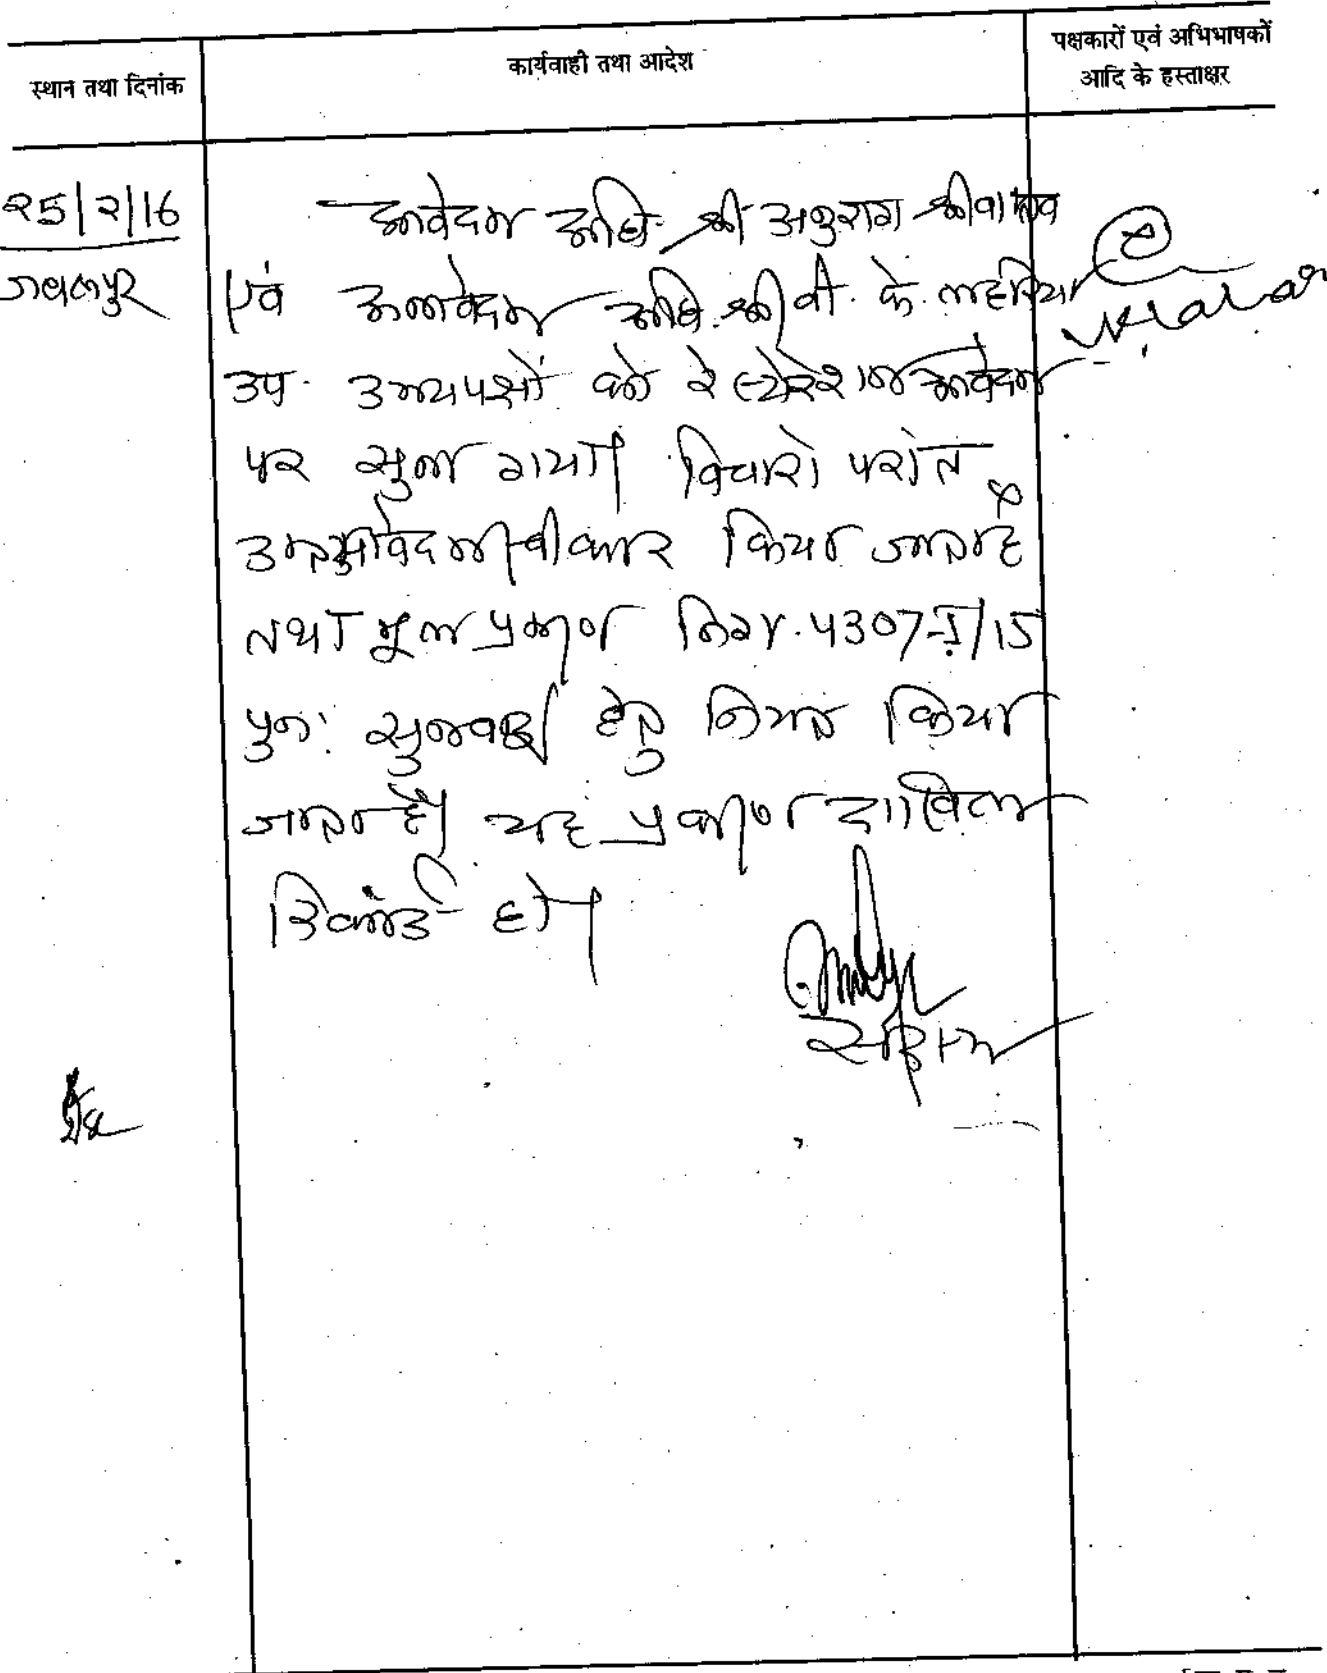 स्थान तथा दिनांक
कार्यवाही तथा आदेश
पक्षकारों एवं अभिभाषकों
आदि के हस्ताक्षर
25/2/16
जबलपुर
आवेदक अधि. श्री अनुराग श्रीवास्तव
एवं अनावेदक अधि. श्री वी. के. लहरिया
उप. उभयपक्षों को रेस्टोरेशन आवेदन
पर सुना गया। विचारो परांत
आवेदन स्वीकार किया जाता है
तथा मूल प्रकरण निग. 4307-I/15
पुनः सुनवाई हेतु नियत किया
जाता है। यह प्रकरण दाखिल
रिकॉर्ड हो।
सदस्य